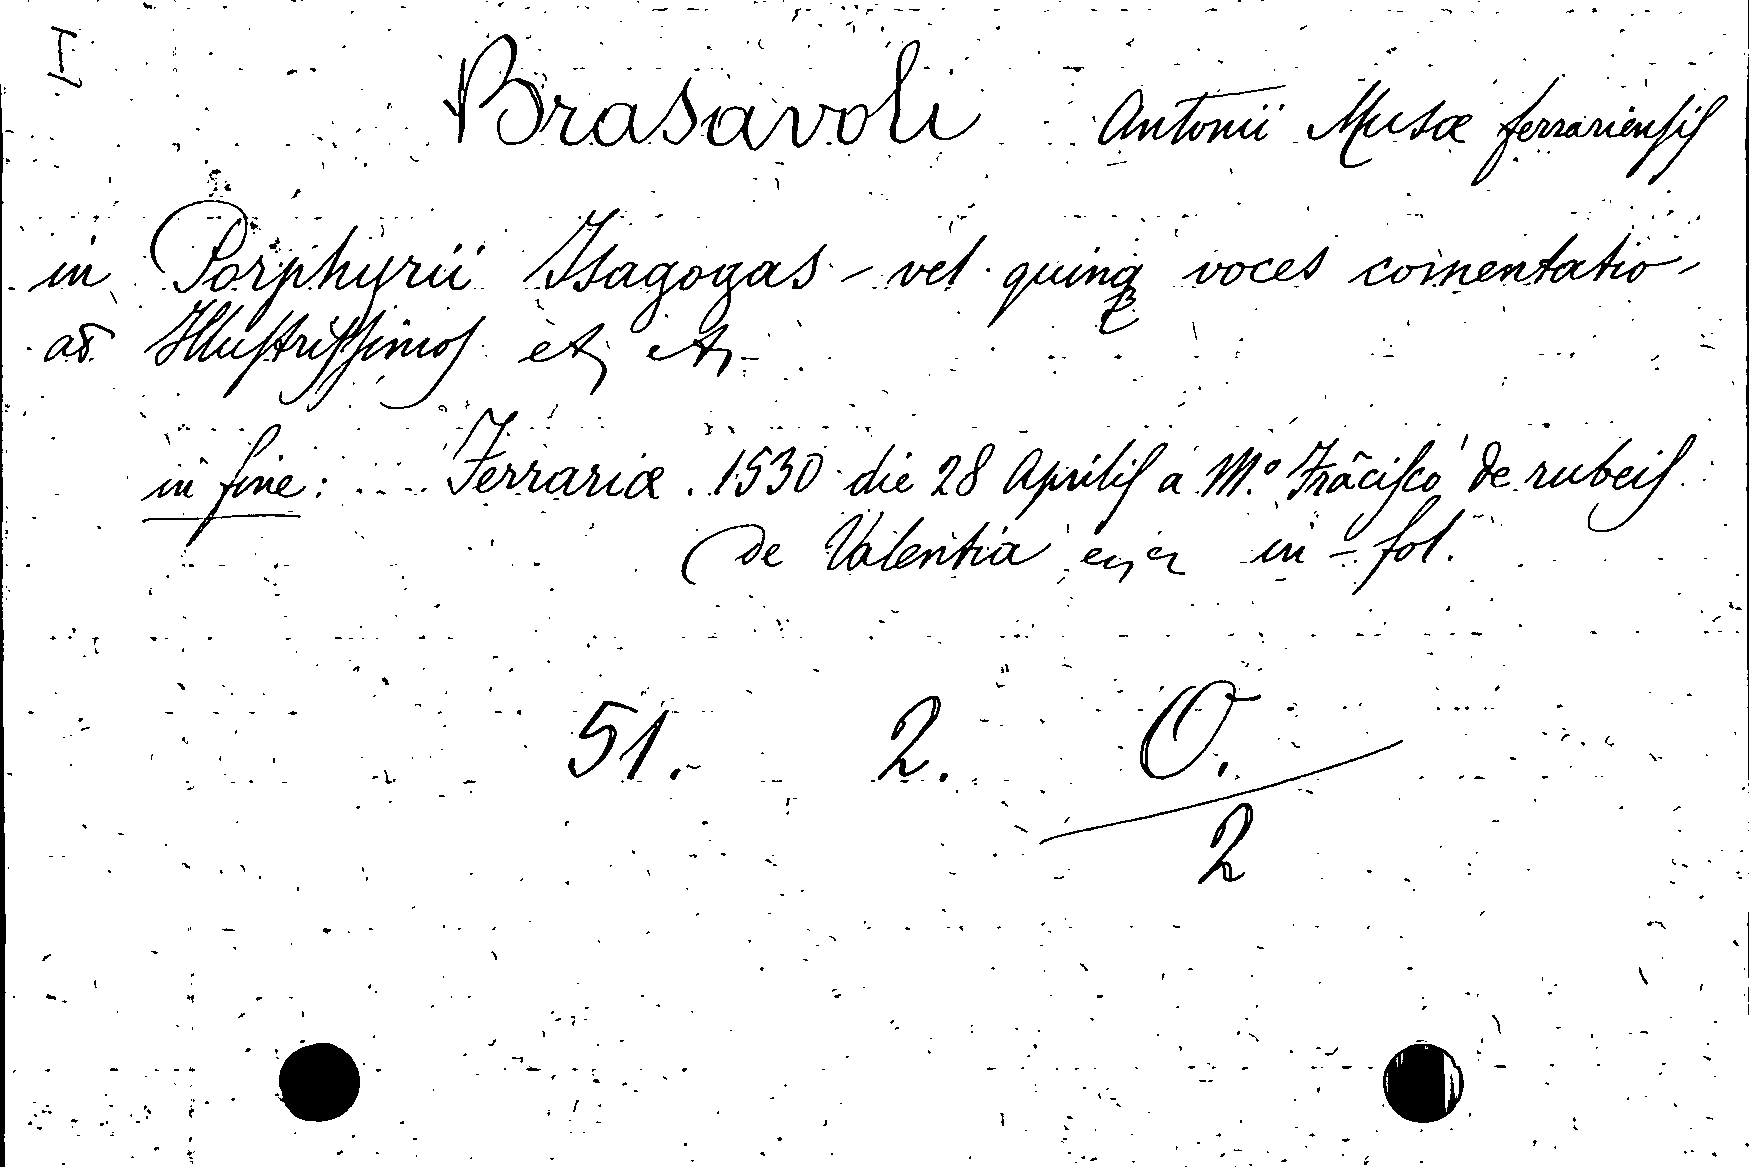 I
Brasavoli Antonii Musæ ferrariensis
in Porphyrii Isagogas - vel quinqꝫ voces com̄entatio -
ad Illustrissimos etc etc
in fine: .... Ferrariæ . 1530 die 28 Aprilis a M.° Frãcisco de rubeis
de Valentia in - fol.
51. 2. O.
2